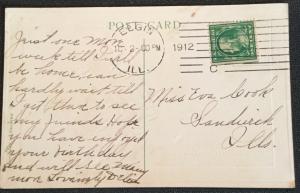 POST CARD
ELGIN
2-30 PM
1912
ILL.
C
Just one mor
week till I will
be home, can
hardly wait till
I get there to see
my Hope
you have enjoyed
your Birthday
and will see many
mor Lovingly
Miss Eva Cook
Sandwich
Ills.